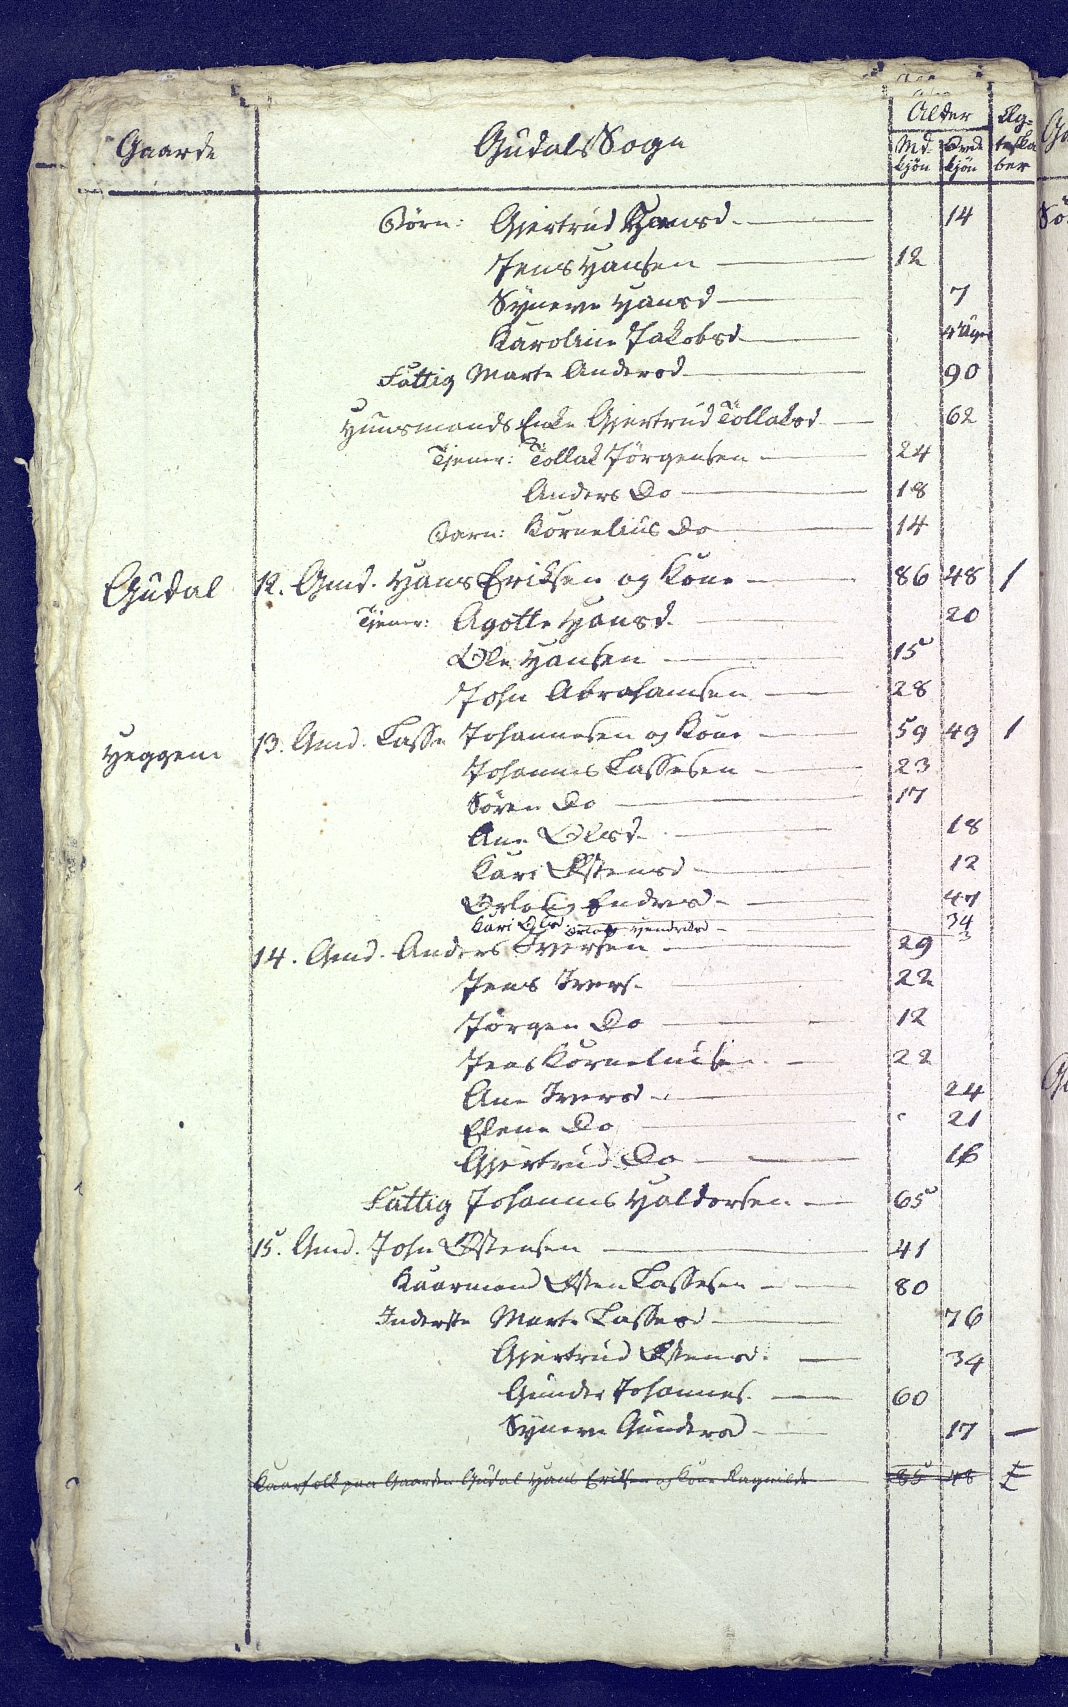 Alder Æg=
Gaarde Gudals Sogn Md. Qvd. teska
kjön kjön ber
Börn: Gjertrud Hansd. 14
Jens Hansen 12
Synneve Hansd 7
Karoline Jakobsd 4 Uger
Fattig Marte Andersd 90
Huusmands Enke Gjertrud Tollaksd 62
Tjener: Tollak Jörgensen 24
Anders Do 18
Barn: Kornelius Do 14
Gudal 12. Gmd. Hans Eriksen og Kone 86 48 1
Tjener: Agotte Hansd. 20
Ole Hansen 15
John Abrahamsen 28
Heggem 13. Gmd. Lasse Johannesen og Kone 59 49 1
Johannes Lassesen 23
Sören Do 17
Ane Olsd. 18
Kari Østensd 12
Endresd 47
Kari Olsd. Hendriksd 34
14. Gmd. Anders Iversen 29
Jens Ivers. 22
Jörgen Do 12
Jens Korneliusen 22
Ane Iversd 24
Elene Do 21
Gjertrud Do 16
Fattig Johannes Haldorsen 65
15. Gmd. John Østensen 41
Kaarmand Østen Lassesen 80
Inderste Marte Lassesd 76
Gjertrud Østensd. 34
Gunder Johannes. 60
Synneve Gundersd 17
Kaarfolk paa Gaarden Gudal Hans Eriksen og Kone Ragnilde 85 48